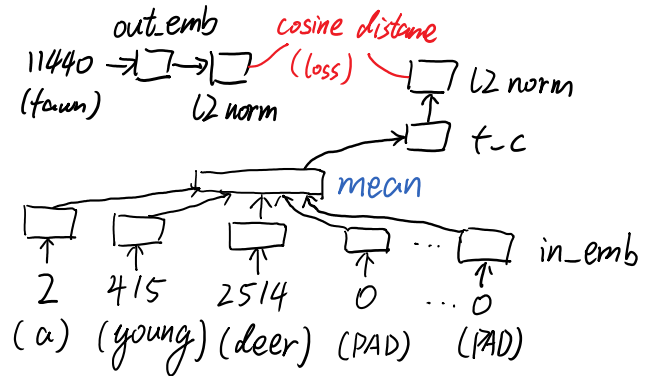 out_emb
cosine distane
(loss)
11440
(fawn)
l2 norm
l2 norm
t_c
mean
in_emb
2 415 2514 0 ... 0
(a) (young) (deer) (PAD) (PAD)